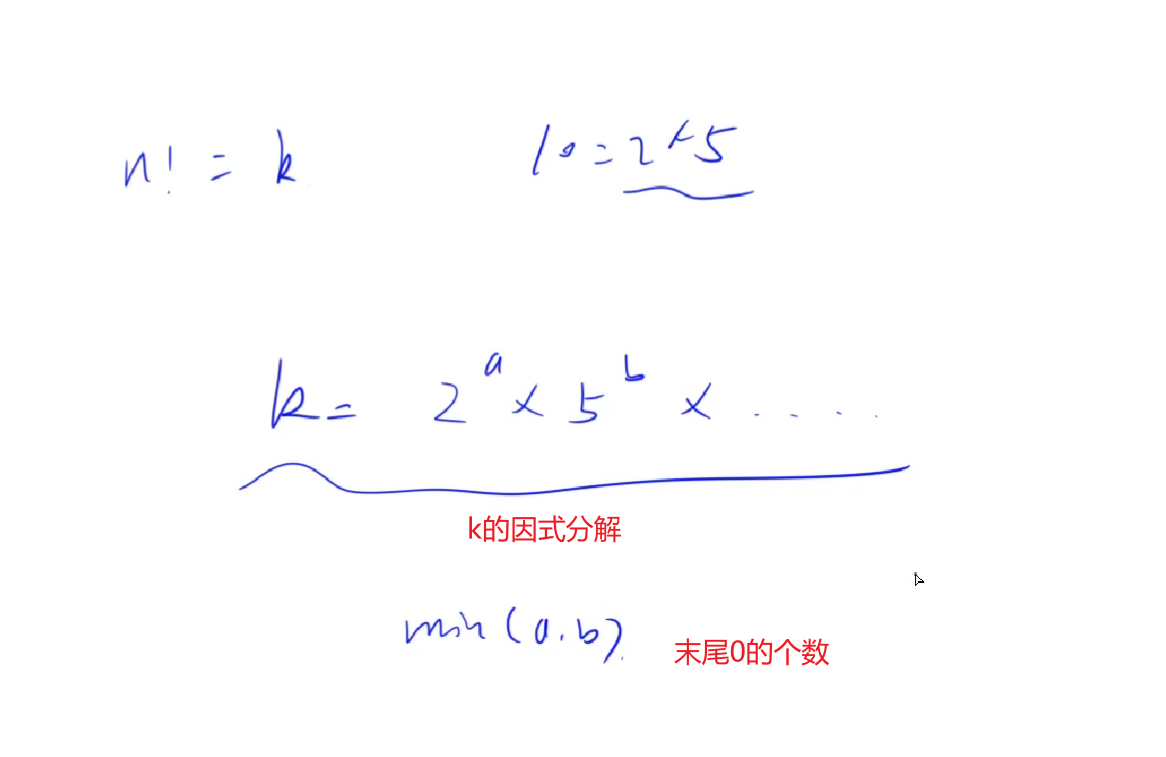 n! = k
10 = 2 × 5
k = 2^a × 5^b × .....
k的因式分解
min(a.b).
末尾0的个数